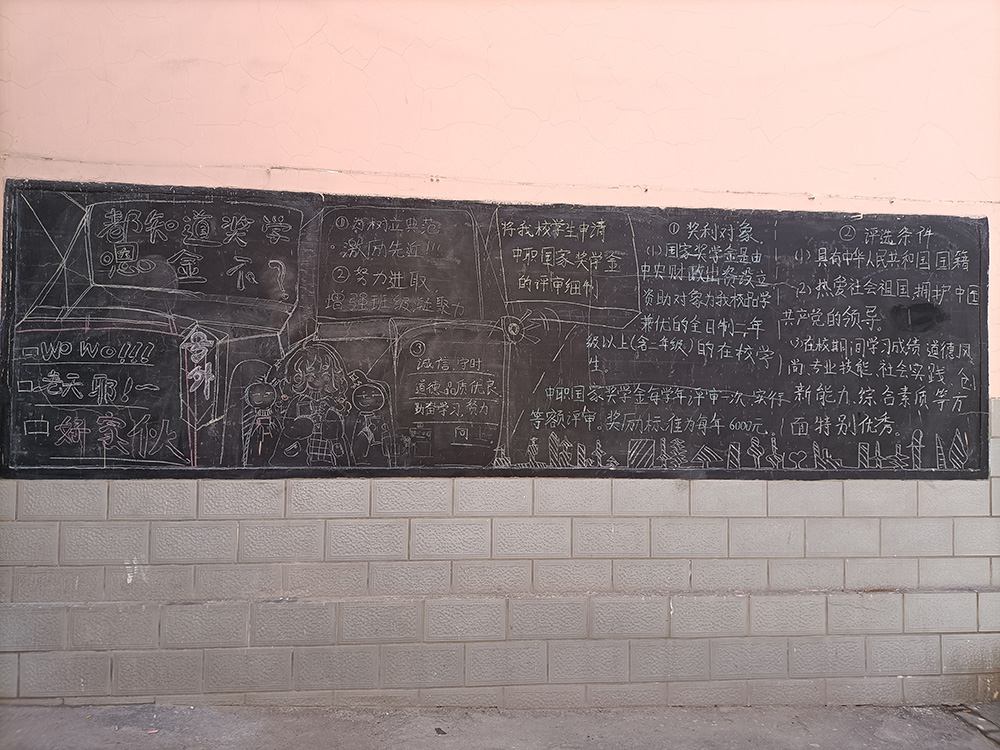 都知道奖学
金不?
嗯
WO WO!!!
老天耶!
好家伙
号外
① 为树立典范
激励先进!!!
② 努力进取
增强班级凝聚力
③
诚信守时
道德品质优良
勤奋学习、努力
将我校学生申请
中职国家奖学金
的评审细则
① 奖利对象
(1)国家奖学金是由
中央财政出资设立
资助对象为我校品学
兼优的全日制二年
级以上(含二年级)的在校学
生
中职国家奖学金每学年评审一次,实行
等额评审。奖励标准为每年6000元。
② 评选条件
(1)具有中华人民共和国国籍
(2)热爱社会祖国,拥护中国
共产党的领导。
(3)在校期间学习成绩、道德风
尚、专业技能、社会实践、创
新能力、综合素质等方
面特别优秀。